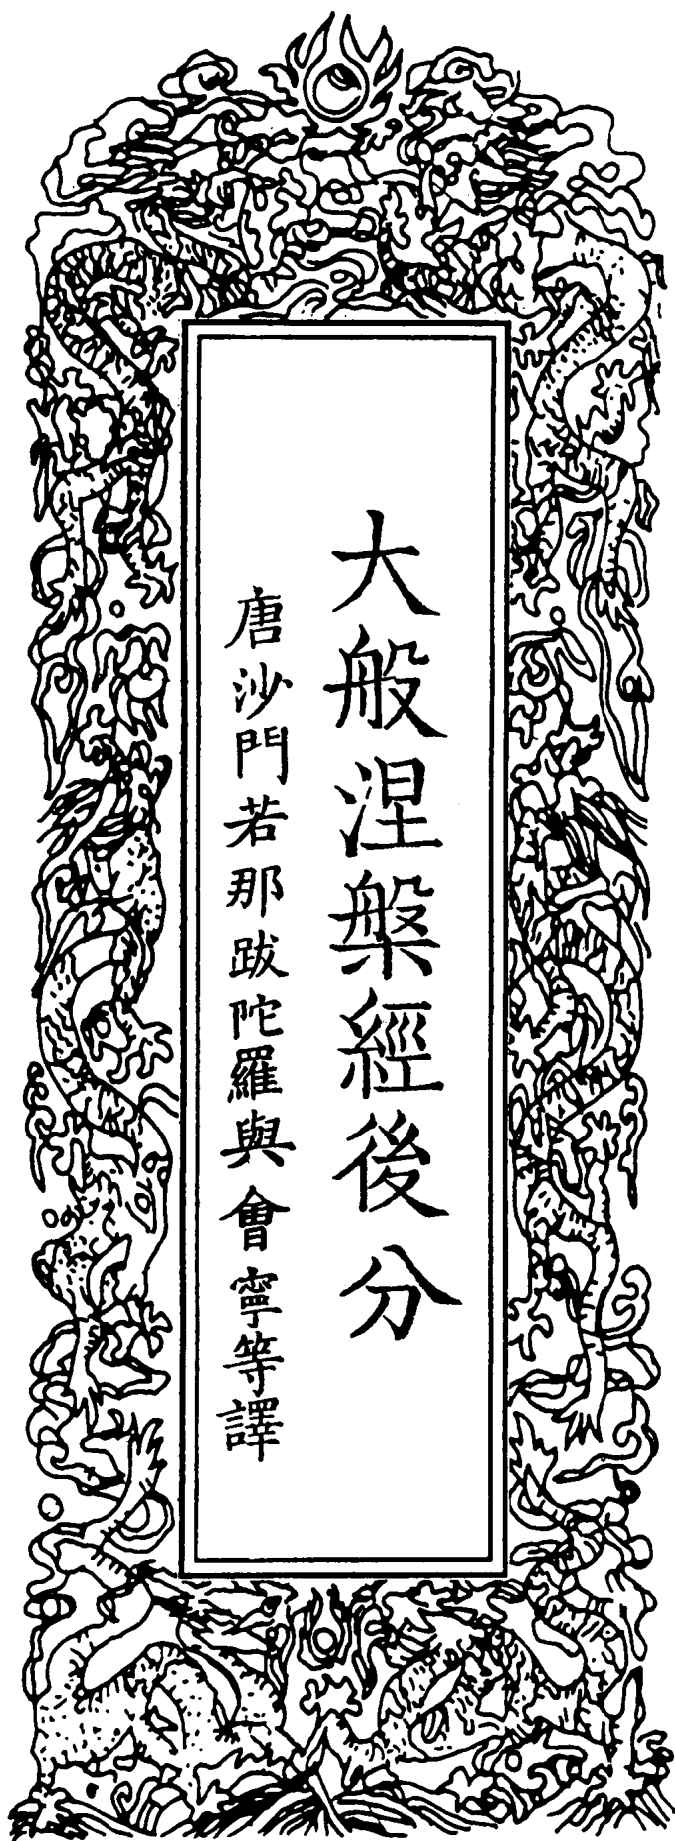 大般涅槃經後分
唐沙門若那跋陀羅與會寧等譯